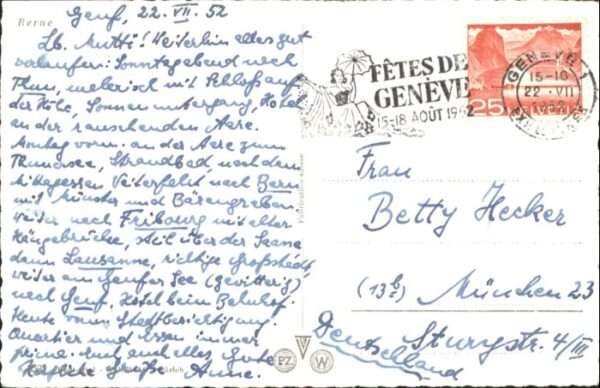 Berne
Genf, 22. VII. 52
Lb. Mutti! Weiterhin alles gut
verlaufen: Sonntagabend nach
Thun, malerisch mit Schloß auf
der Höhe, Sonnenuntergang, Hotel
an der rauschenden Aare.
Montag vorm. an der Aare zum
Thunersee, Strandbad nach dem
Mittagessen Weiterfahrt nach Bern
mit Münster und Bärengraben.
Weiter nach Fribourg mit alter
Hängebrücke, steil über der Saane
dann Lausanne, richtige Großstadt
weiter am Genfer See (gewittrig)
nach Genf. Hotel beim Bahnhof.
Heute vorm. Stadtbesichtigung.
Quartier und Essen immer
prima. Euch alles Gute
Herzliche Grüße Anne.
FÊTES DE
GENÈVE
15-18 AOÛT 1952
GENÈVE 1
15-16
22.VII
1952
25
Frau
Betty Hecker
(13b) München 23
Sturystr. 4/III
Deutschland
PZ
W